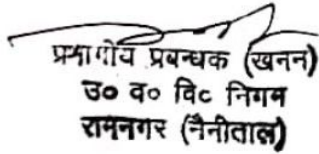 प्रभागीय प्रबन्धक (खनन)
उ० व० वि० निगम
रामनगर (नैनीताल)